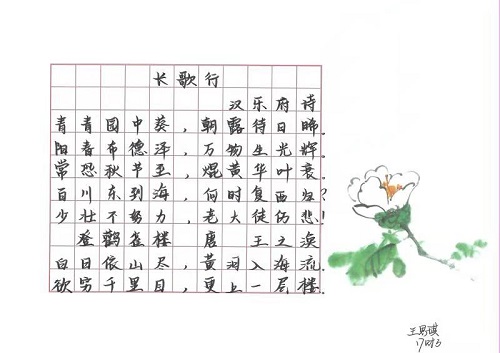 长歌行
汉乐府诗
青青园中葵，朝露待日晞。
阳春布德泽，万物生光辉。
常恐秋节至，焜黄华叶衰。
百川东到海，何时复西归？
少壮不努力，老大徒伤悲！
登鹳雀楼 唐 王之涣
白日依山尽，黄河入海流。
欲穷千里目，更上一层楼。